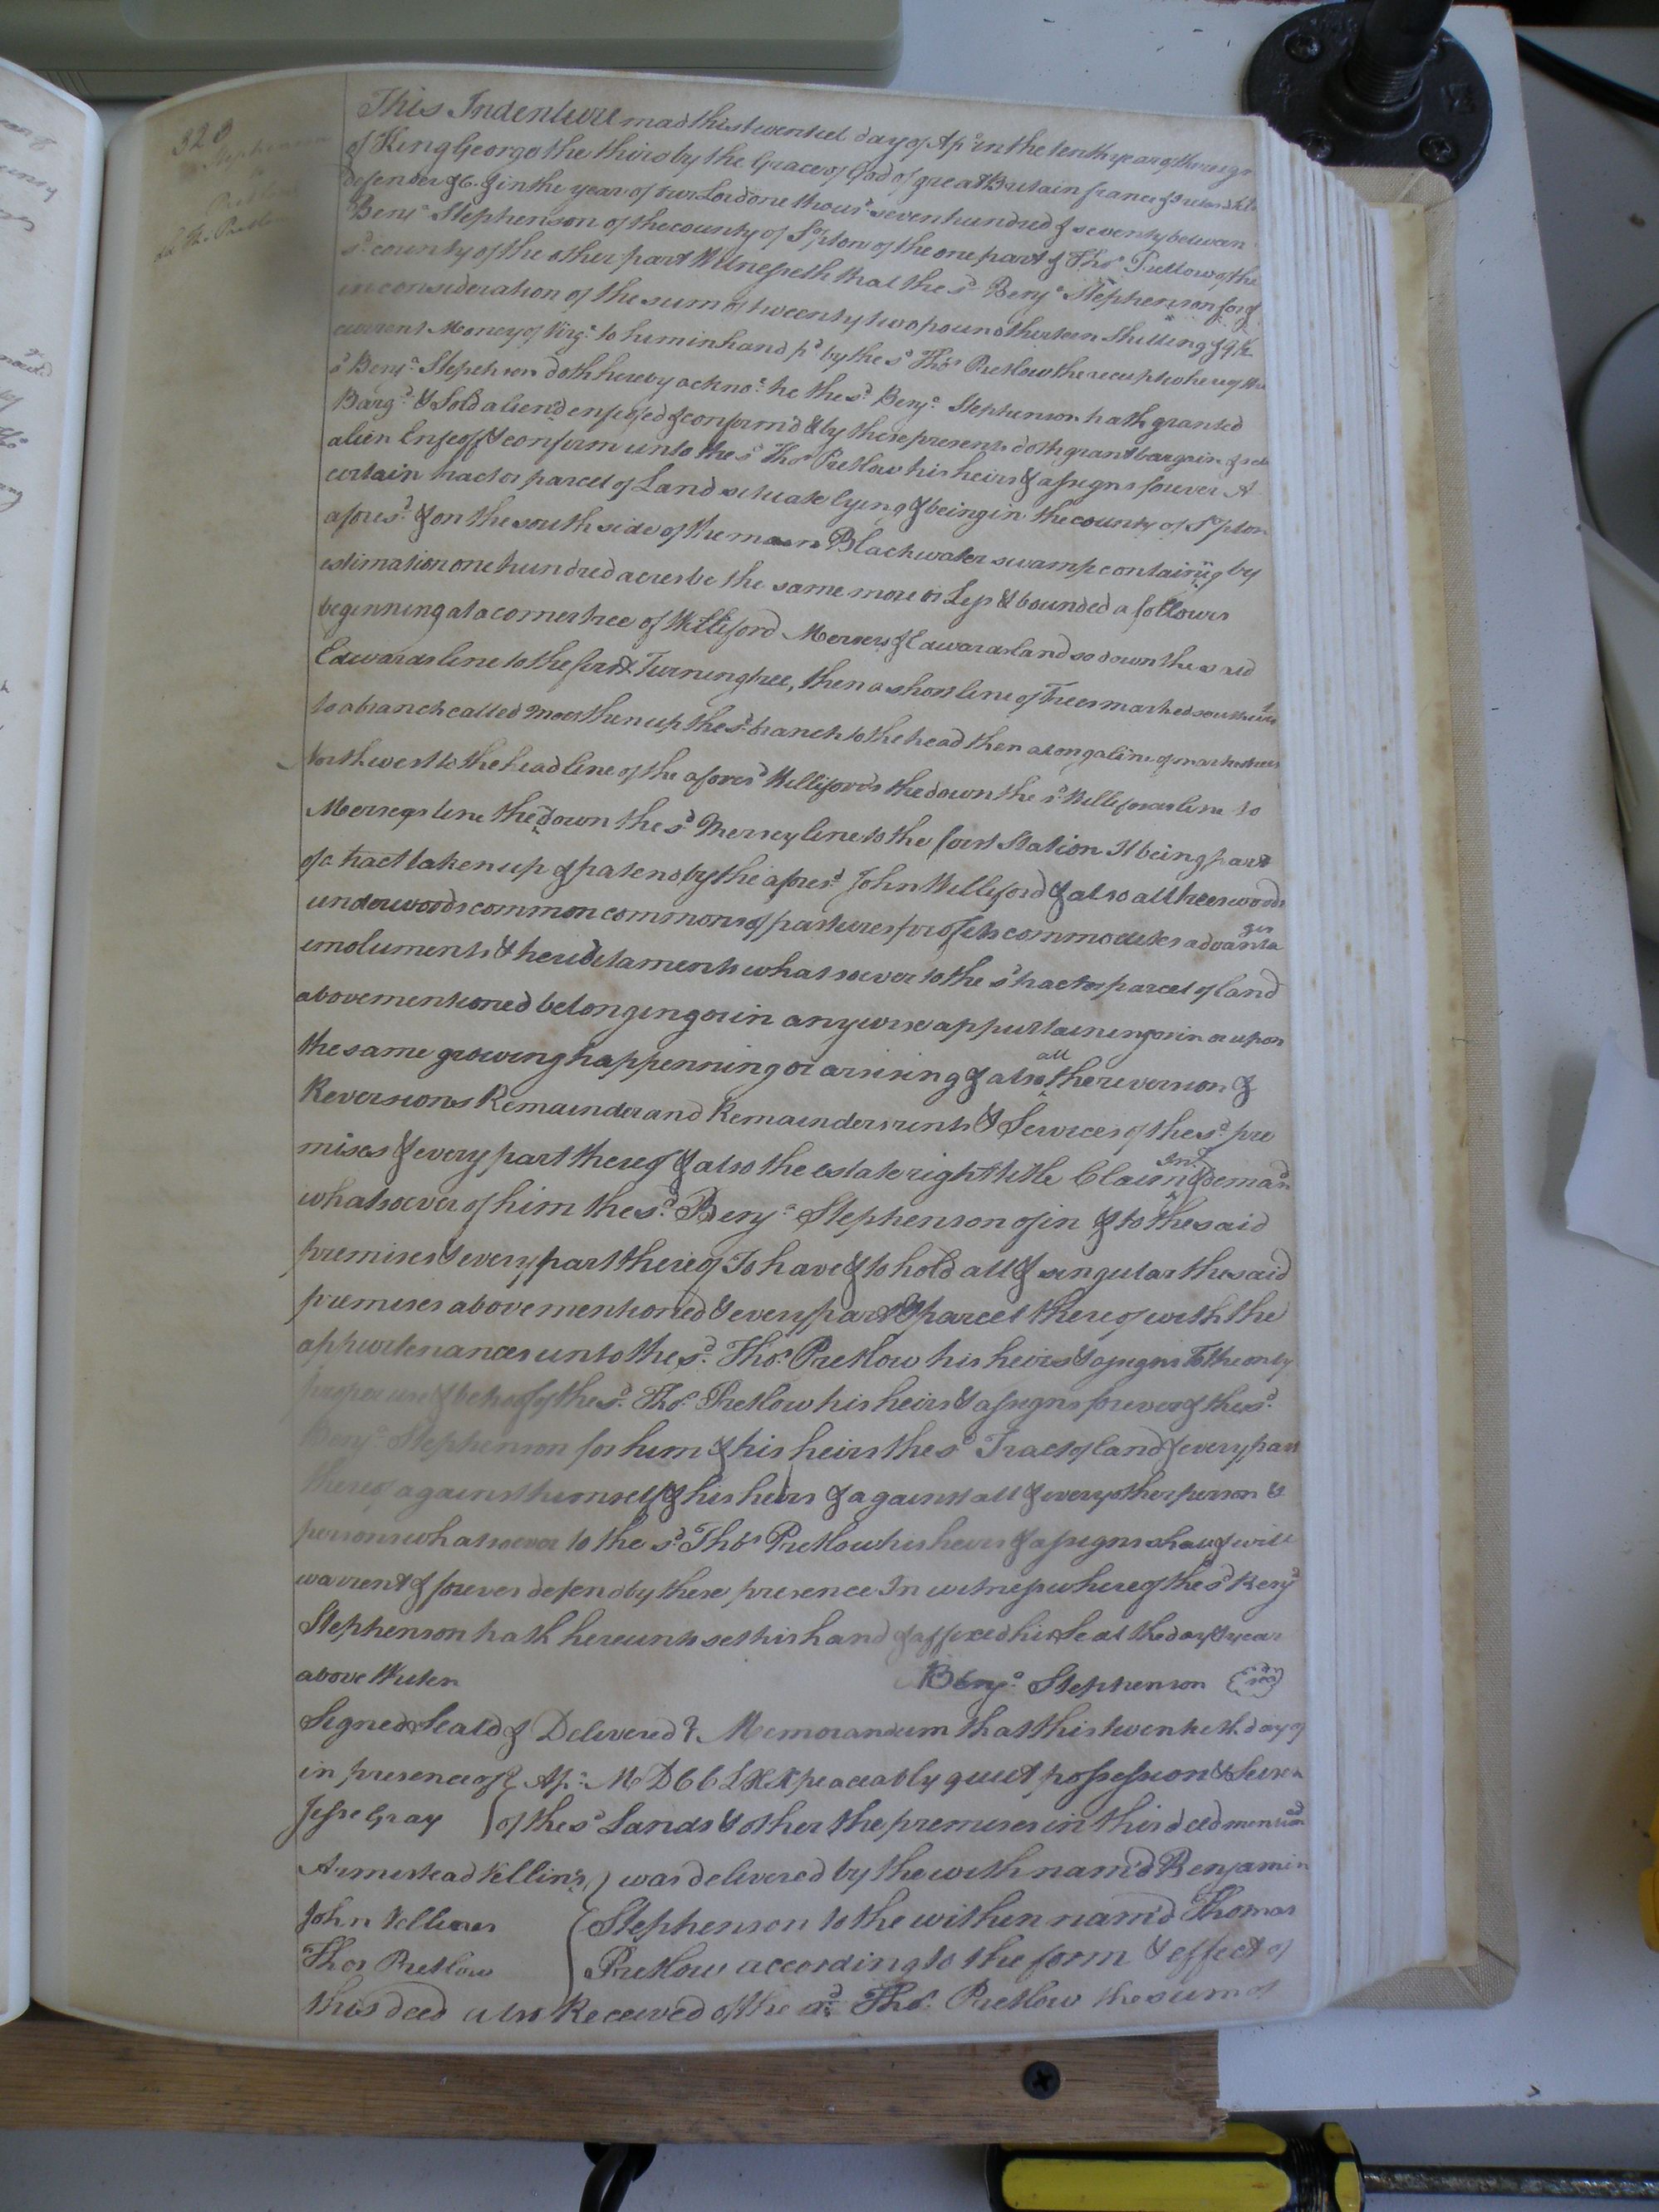 320
Stephenson
Pretlow
This Indenture mad this twentiel day of Ap.l in the tenth year of the reign
of King George the third by the Grace of God of great Britain france & Ireland
defender &c. & in the year of our Lord one thous.d seven hundred & seventy between
Benj.a Stephenson of the county of S.o pton of the one part & Tho.s Pretlow of the
s.d county of the other part Witnesseth that the s.d Benj.a Stephenson for &
in consideration of the sum of twenty two pound therteen Shilling &
current Money of Virg.a to him in hand p.d by the s.d Tho.s Pretlow the receipt whereof the
s.d Benj.a Stephenson doth hereby ackno.e he the s.d Benj.a Stephenson hath granted
Barg.d & Sold aliend enfeofed & confirmd & by these presents doth grant bargain & sell
alien Enfeoff & confirm unto the s.d Tho.s Pretlow his heirs & assigns forever A
certain tract or parcel of Land situate lying & being in the county of S.o pton
afores.d & on the south side of the main Blackwater swamp containg by
estimation one hundred acres be the same more or Less & bounded a follows
beginning at a corner tree of Williford Mercers & Edwards land so down the said
Edwards line to the first Turning tree, then a short line of Trees marked
to a branch called then up the s.d branch to the head then along a line of marked trees
Northwest to the head line of the afores.d Willifords the down the s.d Willifords line to
line the down the s.d line to the first Station It being part
of a tract taken up & patend by the afores.d John Williford & also all trees woods
underwoods common commons of pastures profits commodities advanta ges
emoluments & hereditaments whatsoever to the s.d tract or parcel of land
above mentioned belonging or in anywise appurtaining or in or upon
the same growing happenning or arising & also all the reversion &
Reversions Remainder and Remainders rents & Services of the s.d pre
mises & every part thereof & also the estate right title Claim Int. & deman.d
whatsoever of him the s.d Benj.a Stephenson of in & to the said
premises & every part thereof To have & to hold all & singular the said
premises above mentioned & every part & parcel thereof with the
appurtenances unto the s.d Tho.s Pretlow his heirs & assigns To the only
proper use & behoof of the s.d Tho.s Pretlow his heirs & assigns forever & the s.d
Benj.a Stephenson for him & his heirs the s.d Tract of land & every part
thereof against himself & his heirs & against all & every other person &
persons whatsoever to the s.d Tho.s Pretlow his heirs & assigns shall & will
warrent & forever defend by these presence In witness whereof the s.d Benj.a
Stephenson hath hereunto set his hand & affixed his Seal the day & year
above Writen Benj.a Stephenson
Signed Seald & Delivered } Memorandum that this twentieth day of
in presence of } Ap.l MDCCLXX peaceably quiet possession & Seisen
Jesse Gray } of the s.d Lands & other the premises in this deed mention.d
Armestead Vellins } was delivered by the with namd Benjamin
John Vellines { Stephenson to the within namd Thomas
Thos Pretlow { Pretlow according to the form & effect of
this deed also Received of the s.d Tho.s Pretlow the sum of